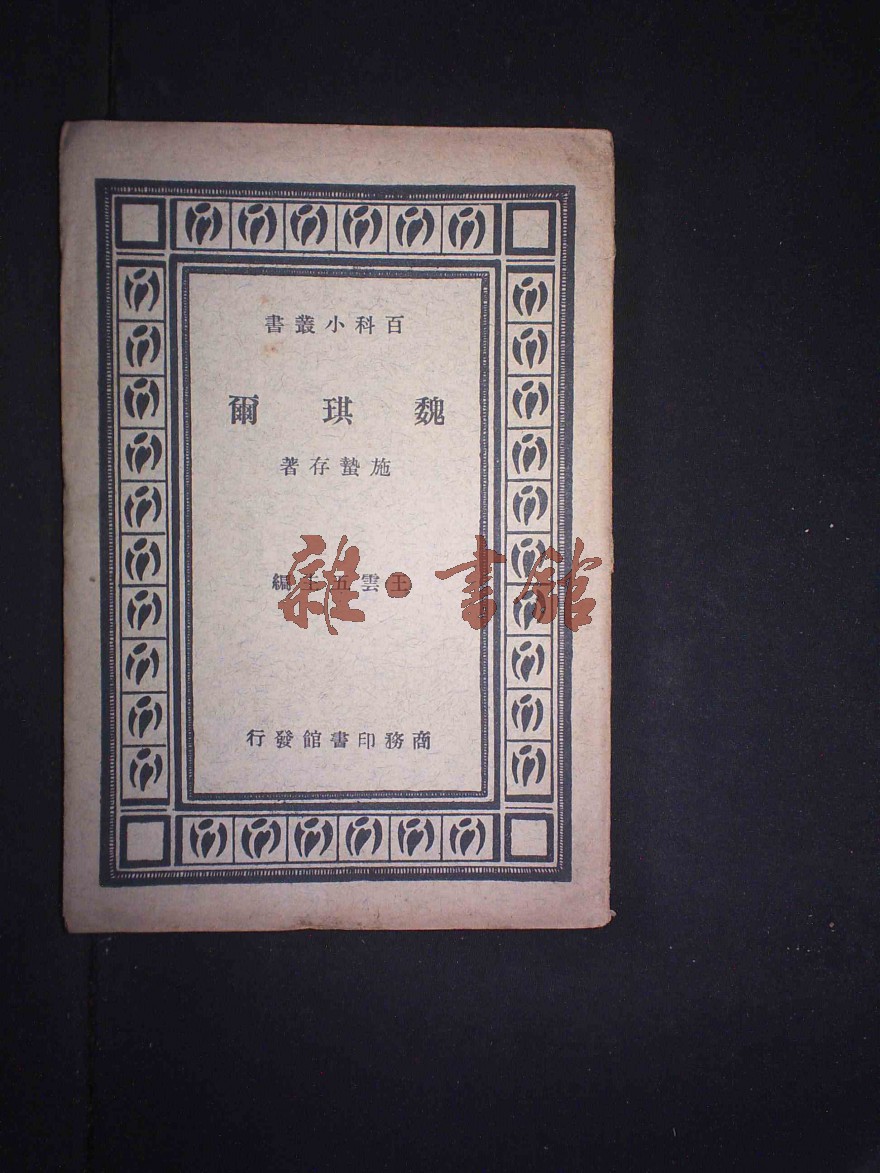 百科小叢書
魏琪爾
施蟄存著
王雲五主編
雜·書館
商務印書館發行